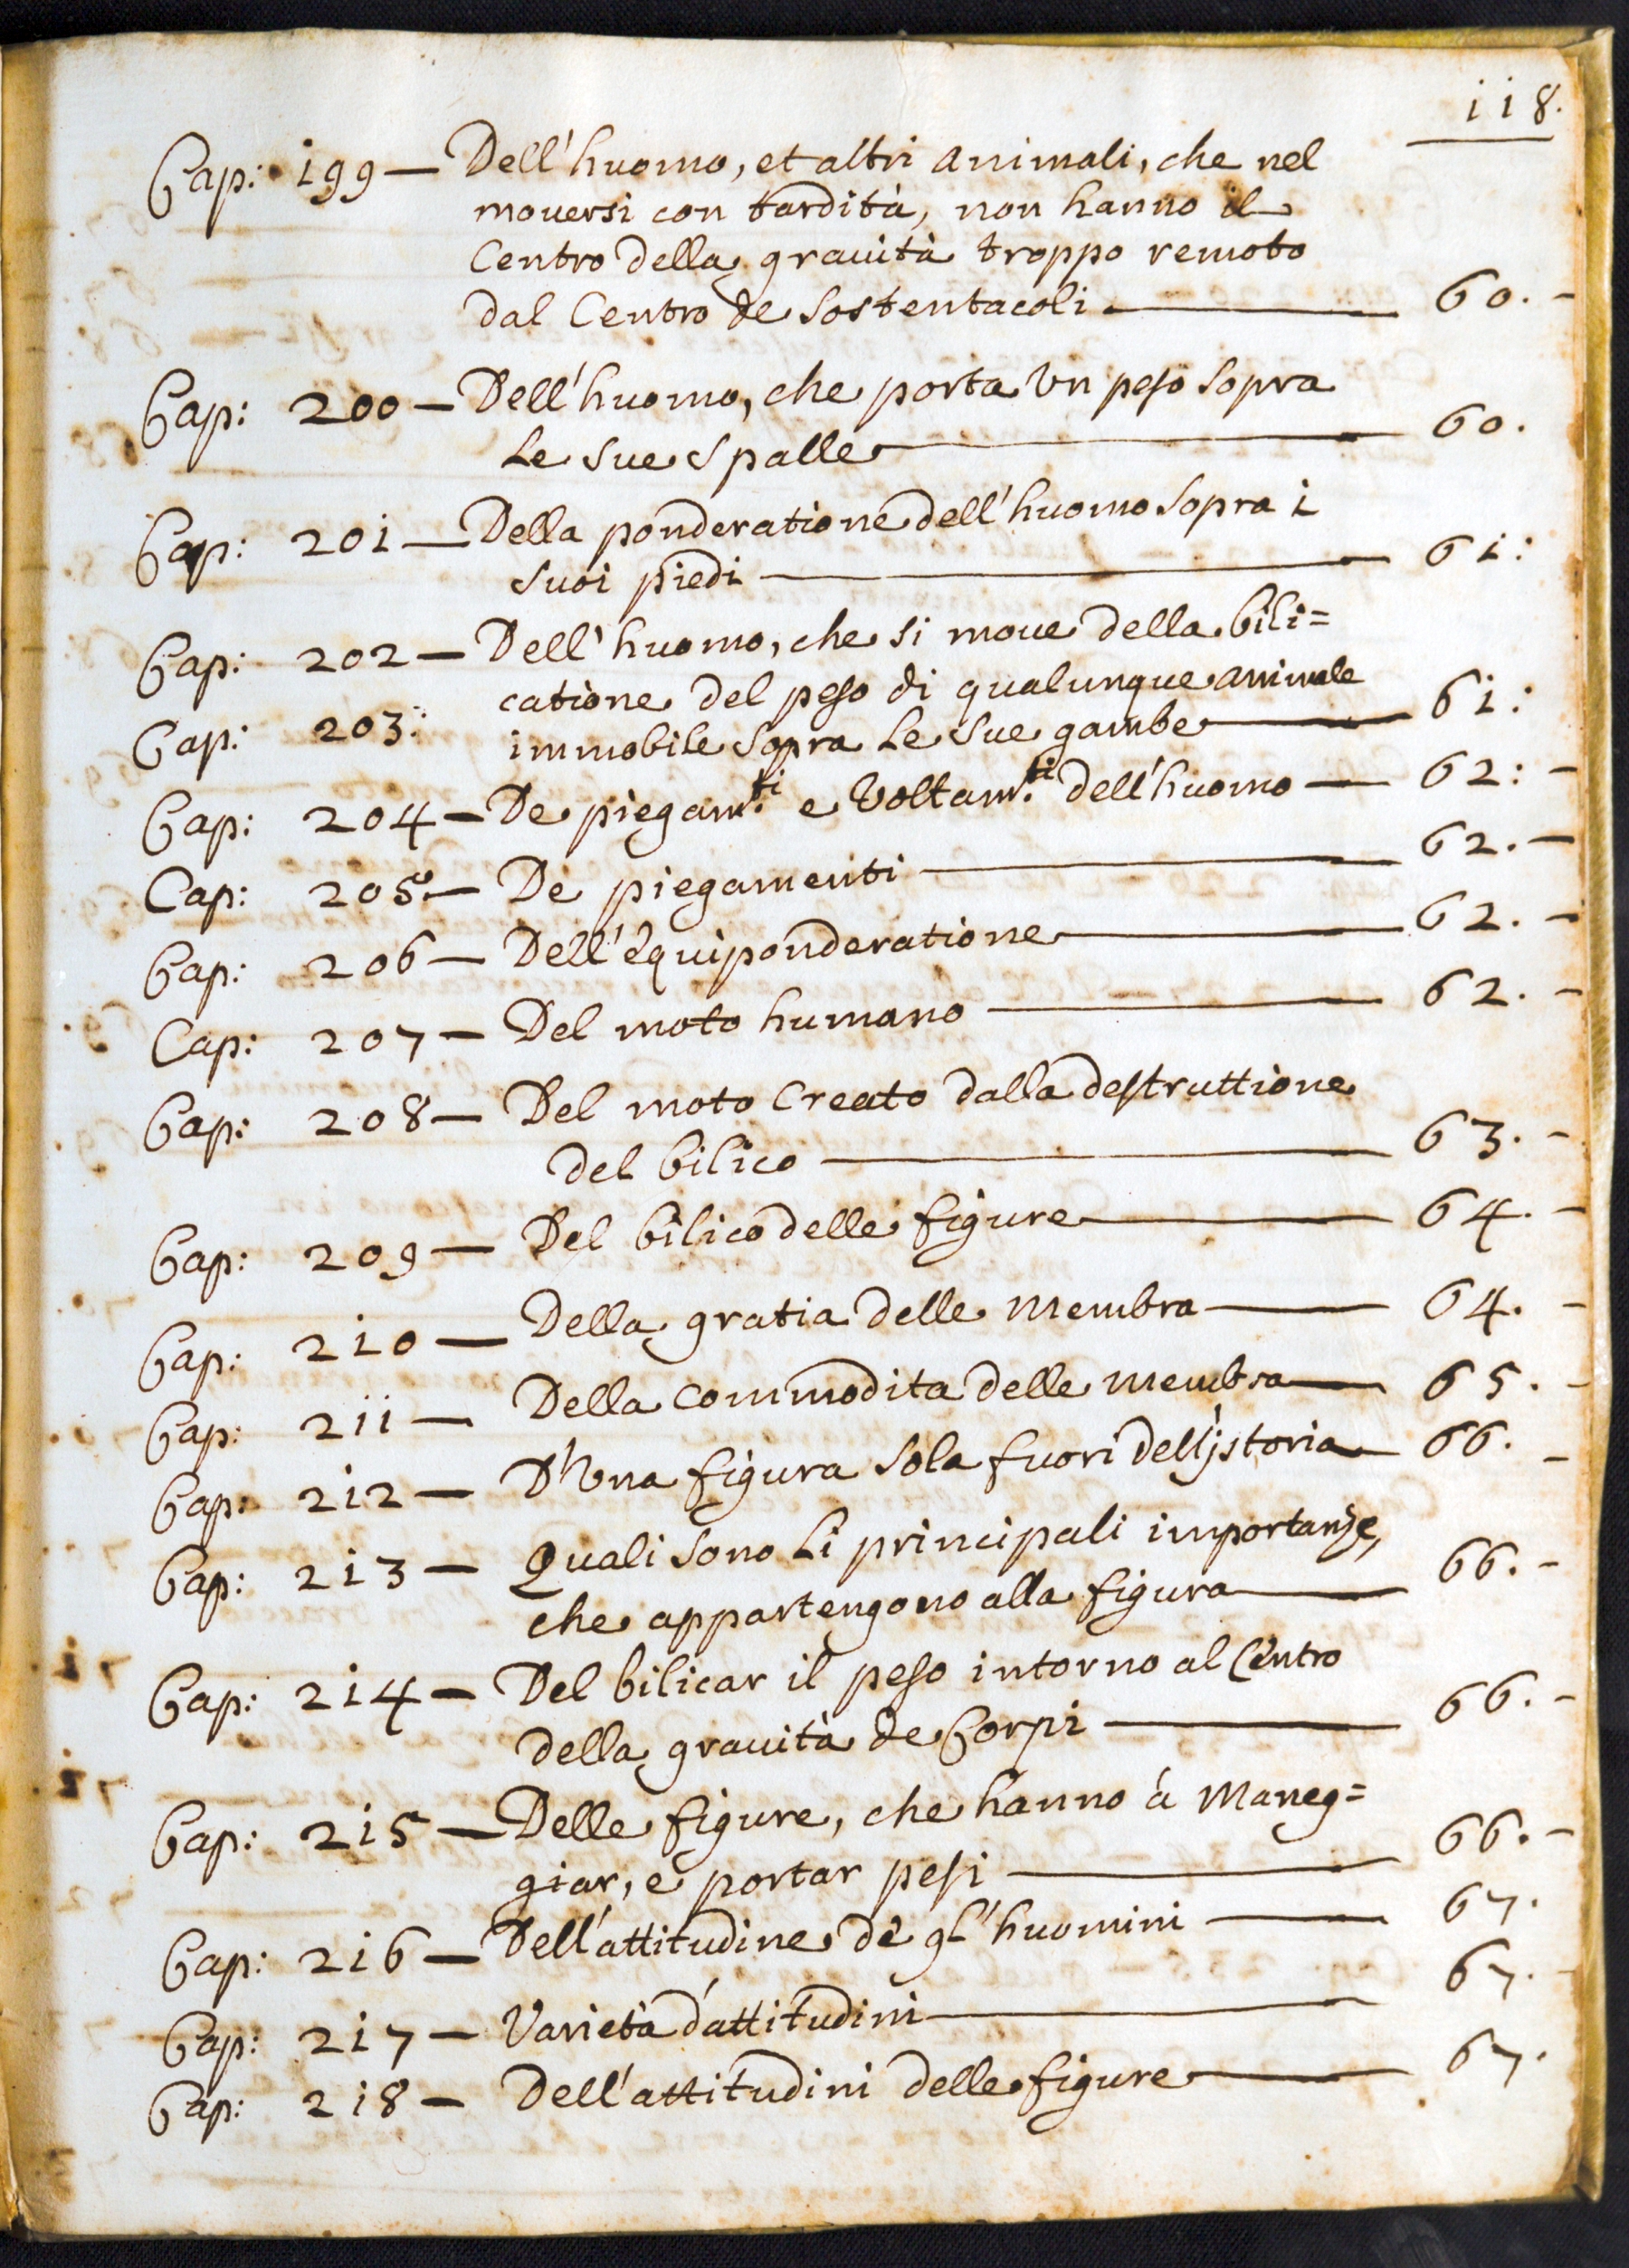 118.
Cap: 199 — Dell'huomo, et altri animali, che nel
mouersi con tardità, non hanno il
Centro della grauità troppo remoto
dal Centro de sostentacoli — 60. -
Cap: 200 — Dell'huomo, che porta vn peso sopra
le sue spalle — 60.
Cap: 201 — Della ponderatione dell'huomo sopra i
suoi piedi — 61:
Cap: 202 — Dell'huomo, che si moue della bili=
catione del peso di qualunque animale
Cap: 203: immobile sopra le sue gambe — 61:
Cap: 204 — De piegam.ti e Voltam.ti dell'huomo — 62: -
Cap: 205 — De piegamenti — 62. -
Cap: 206 — Dell'equiponderatione — 62. -
Cap: 207 — Del moto humano — 62. -
Cap: 208 — Del moto Creato dalla destruttione
del bilico — 63. -
Cap: 209 — Del bilico delle figure — 64. -
Cap: 210 — Della gratia delle Membra — 64. -
Cap: 211 — Della commodita delle membra — 65. -
Cap: 212 — D'Vna figura sola fuori dell'jstoria — 66. -
Cap: 213 — Quali sono li principali importanze,
che appartengono alla figura — 66. -
Cap: 214 — Del bilicar il peso intorno al Centro
della grauità de Corpi — 66. -
Cap: 215 — Delle figure, che hanno à Maneg=
giar, e portar pesi — 66. -
Cap: 216 — Dell'attitudine de gl'huomini — 67.
Cap: 217 — Varietà d'attitudini — 67. -
Cap: 218 — Dell'attitudini delle figure — 67.